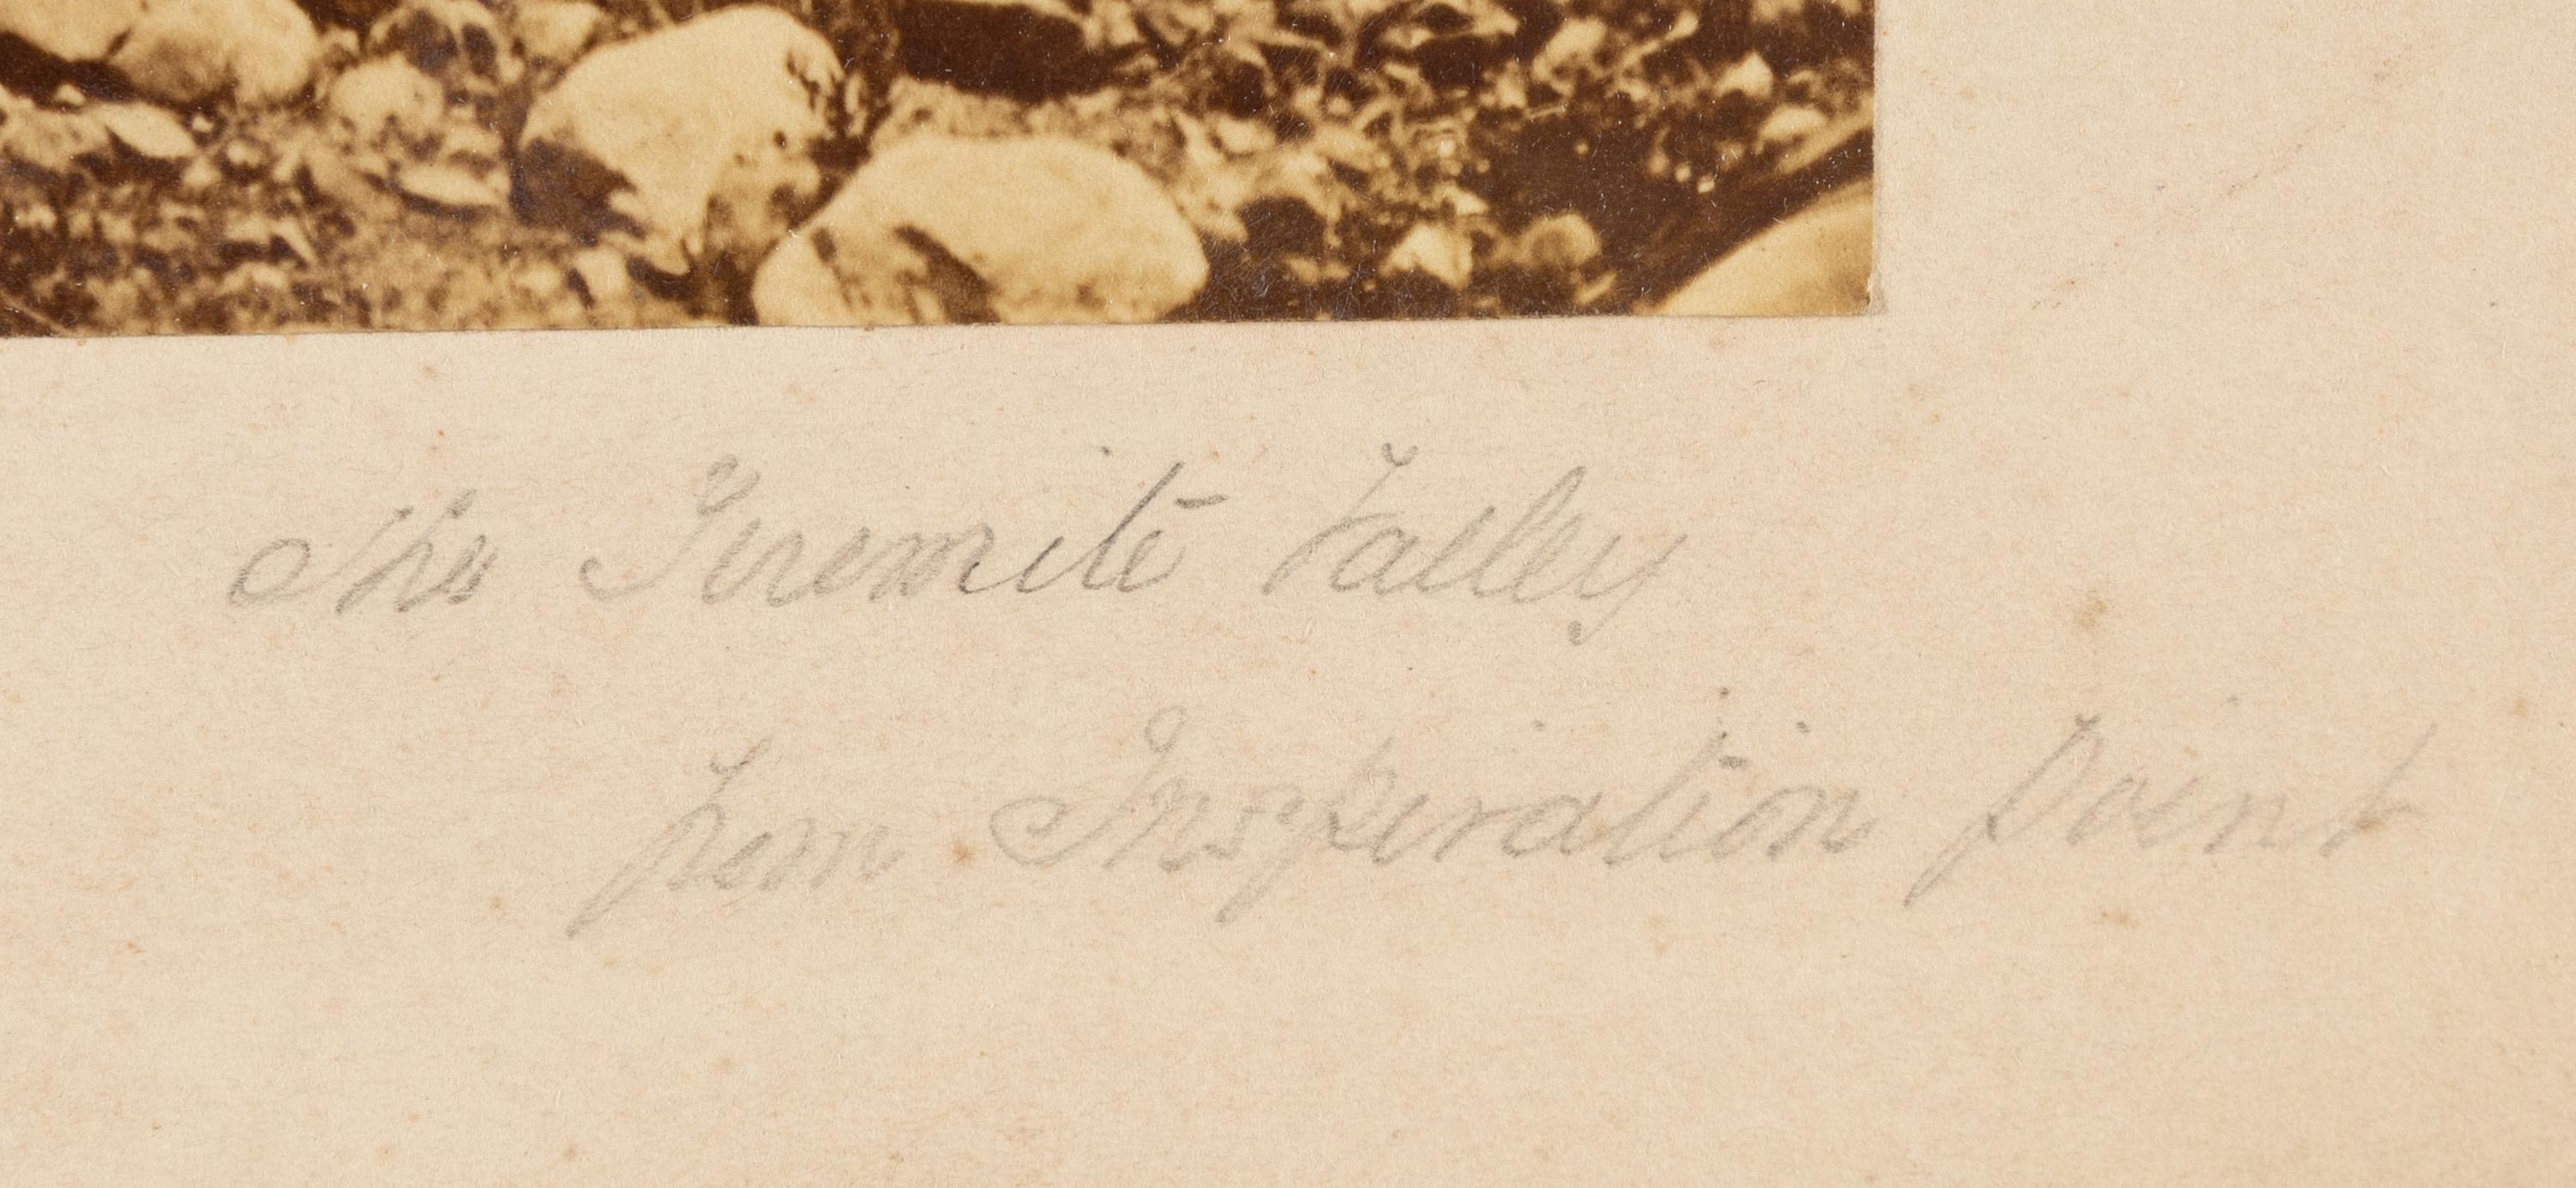 The Yosemite Valley
from Inspiration Point